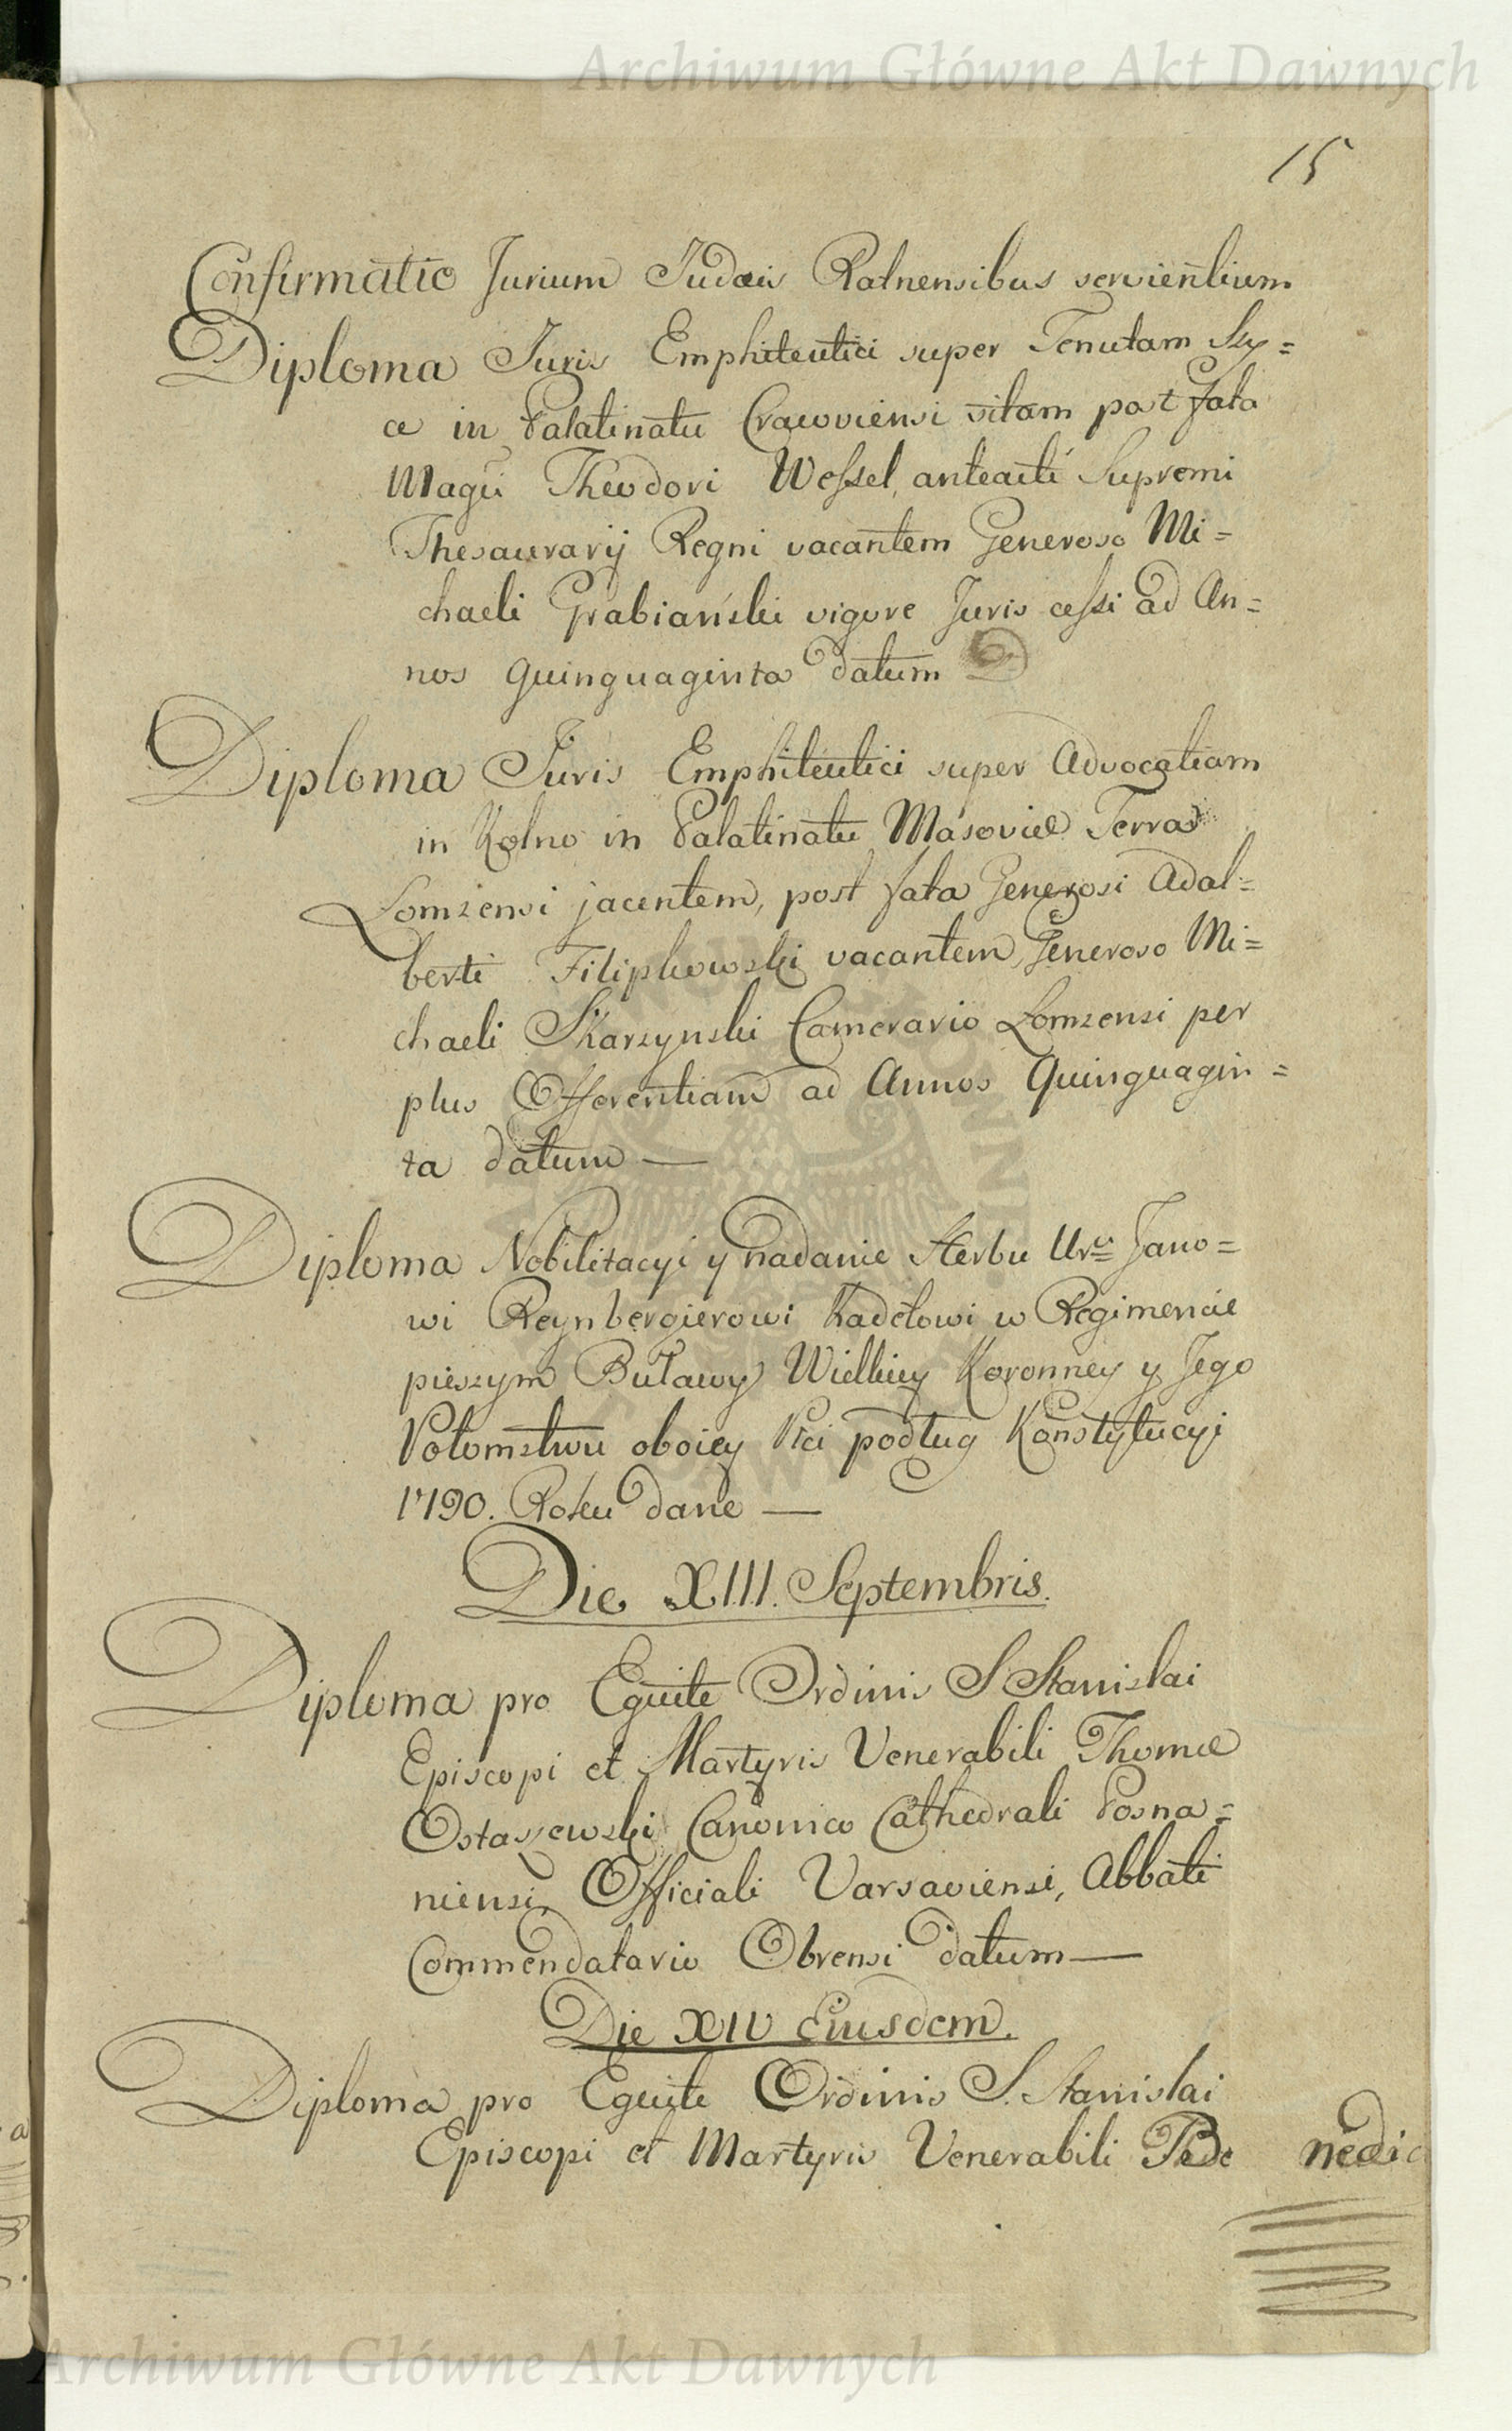 Archiwum Główne Akt Dawnych
15
Confirmatio Jurium Judæis Ratnensibus servientium
Diploma Juris Emphiteutici super Tenutam Szy=
ce in Palatinatu Cracoviensi sitam post fata
Magci Theodori Wessel, anteacti Supremi
Thesaurarij Regni vacantem Generoso Mi=
chaeli Grabiański vigore Juris cessi ad An=
nos Quinquaginta datum
Diploma Juris Emphiteutici super Advocatiam
in Kolno in Palatinatu Masoviæ Terra
Lomzensi jacentem, post fata Generosi Adal=
berti Filipkowski vacantem, Generoso Mi=
chaeli Skarzynski Camerario Lomzensi per
plus Offerentiam ad Annos Quinquagin=
ta datum —
Diploma Nobilitacyi y nadanie Herbu Uru Jano=
wi Reynbergierowi Kadetowi w Regimencie
pieszym Buławy Wielkiey Koronney y Jego
Potomstwu oboiey Płci podług Konstytucyi
1790. Roku dane —
Die XIII. Septembris.
Diploma pro Equite Ordinis S Stanislai
Episcopi et Martyris Venerabili Thomæ
Ostaszewski Canonico Cathedrali Posna=
niensi, Officiali Varsaviensi, Abbati
Commendatario Obrensi datum —
Die XIV Eiusdem.
Diploma pro Equite Ordinis S. Stanislai
Episcopi et Martyris Venerabili Be nedic
Archiwum Główne Akt Dawnych